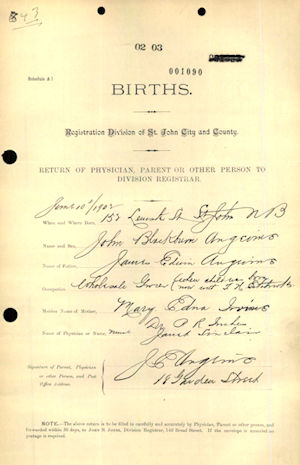 02 03
001090
Schedule A
BIRTHS.
Registration Division of St. John City and County.
RETURN OF PHYSICIAN, PARENT OR OTHER PERSON TO
DIVISION REGISTRAR.
June 10th 1902
When and Where Born, 152 St St John N B
Name and Sex, John Blackburn Angevine
Name of Father, James Edwin Angevine
Occupation Wholesale Grocer when child was born
now with T. H. Estabrooks
Maiden Name of Mother, Mary Edna Irvine
Name of Physician or Nurse, Dr. P R Inches
Nurse Sinclair
Signature of Parent, Physician
or other Person, and Post
Office Address.
J E Angevine
18 Garden Street
NOTE.—The above return is to be filled in carefully and accurately by Physician, Parent or other person, and
forwarded within 30 days, to JOHN B. JONES, Division Registrar, 140 Broad Street. If the envelope is unsealed no
postage is required.